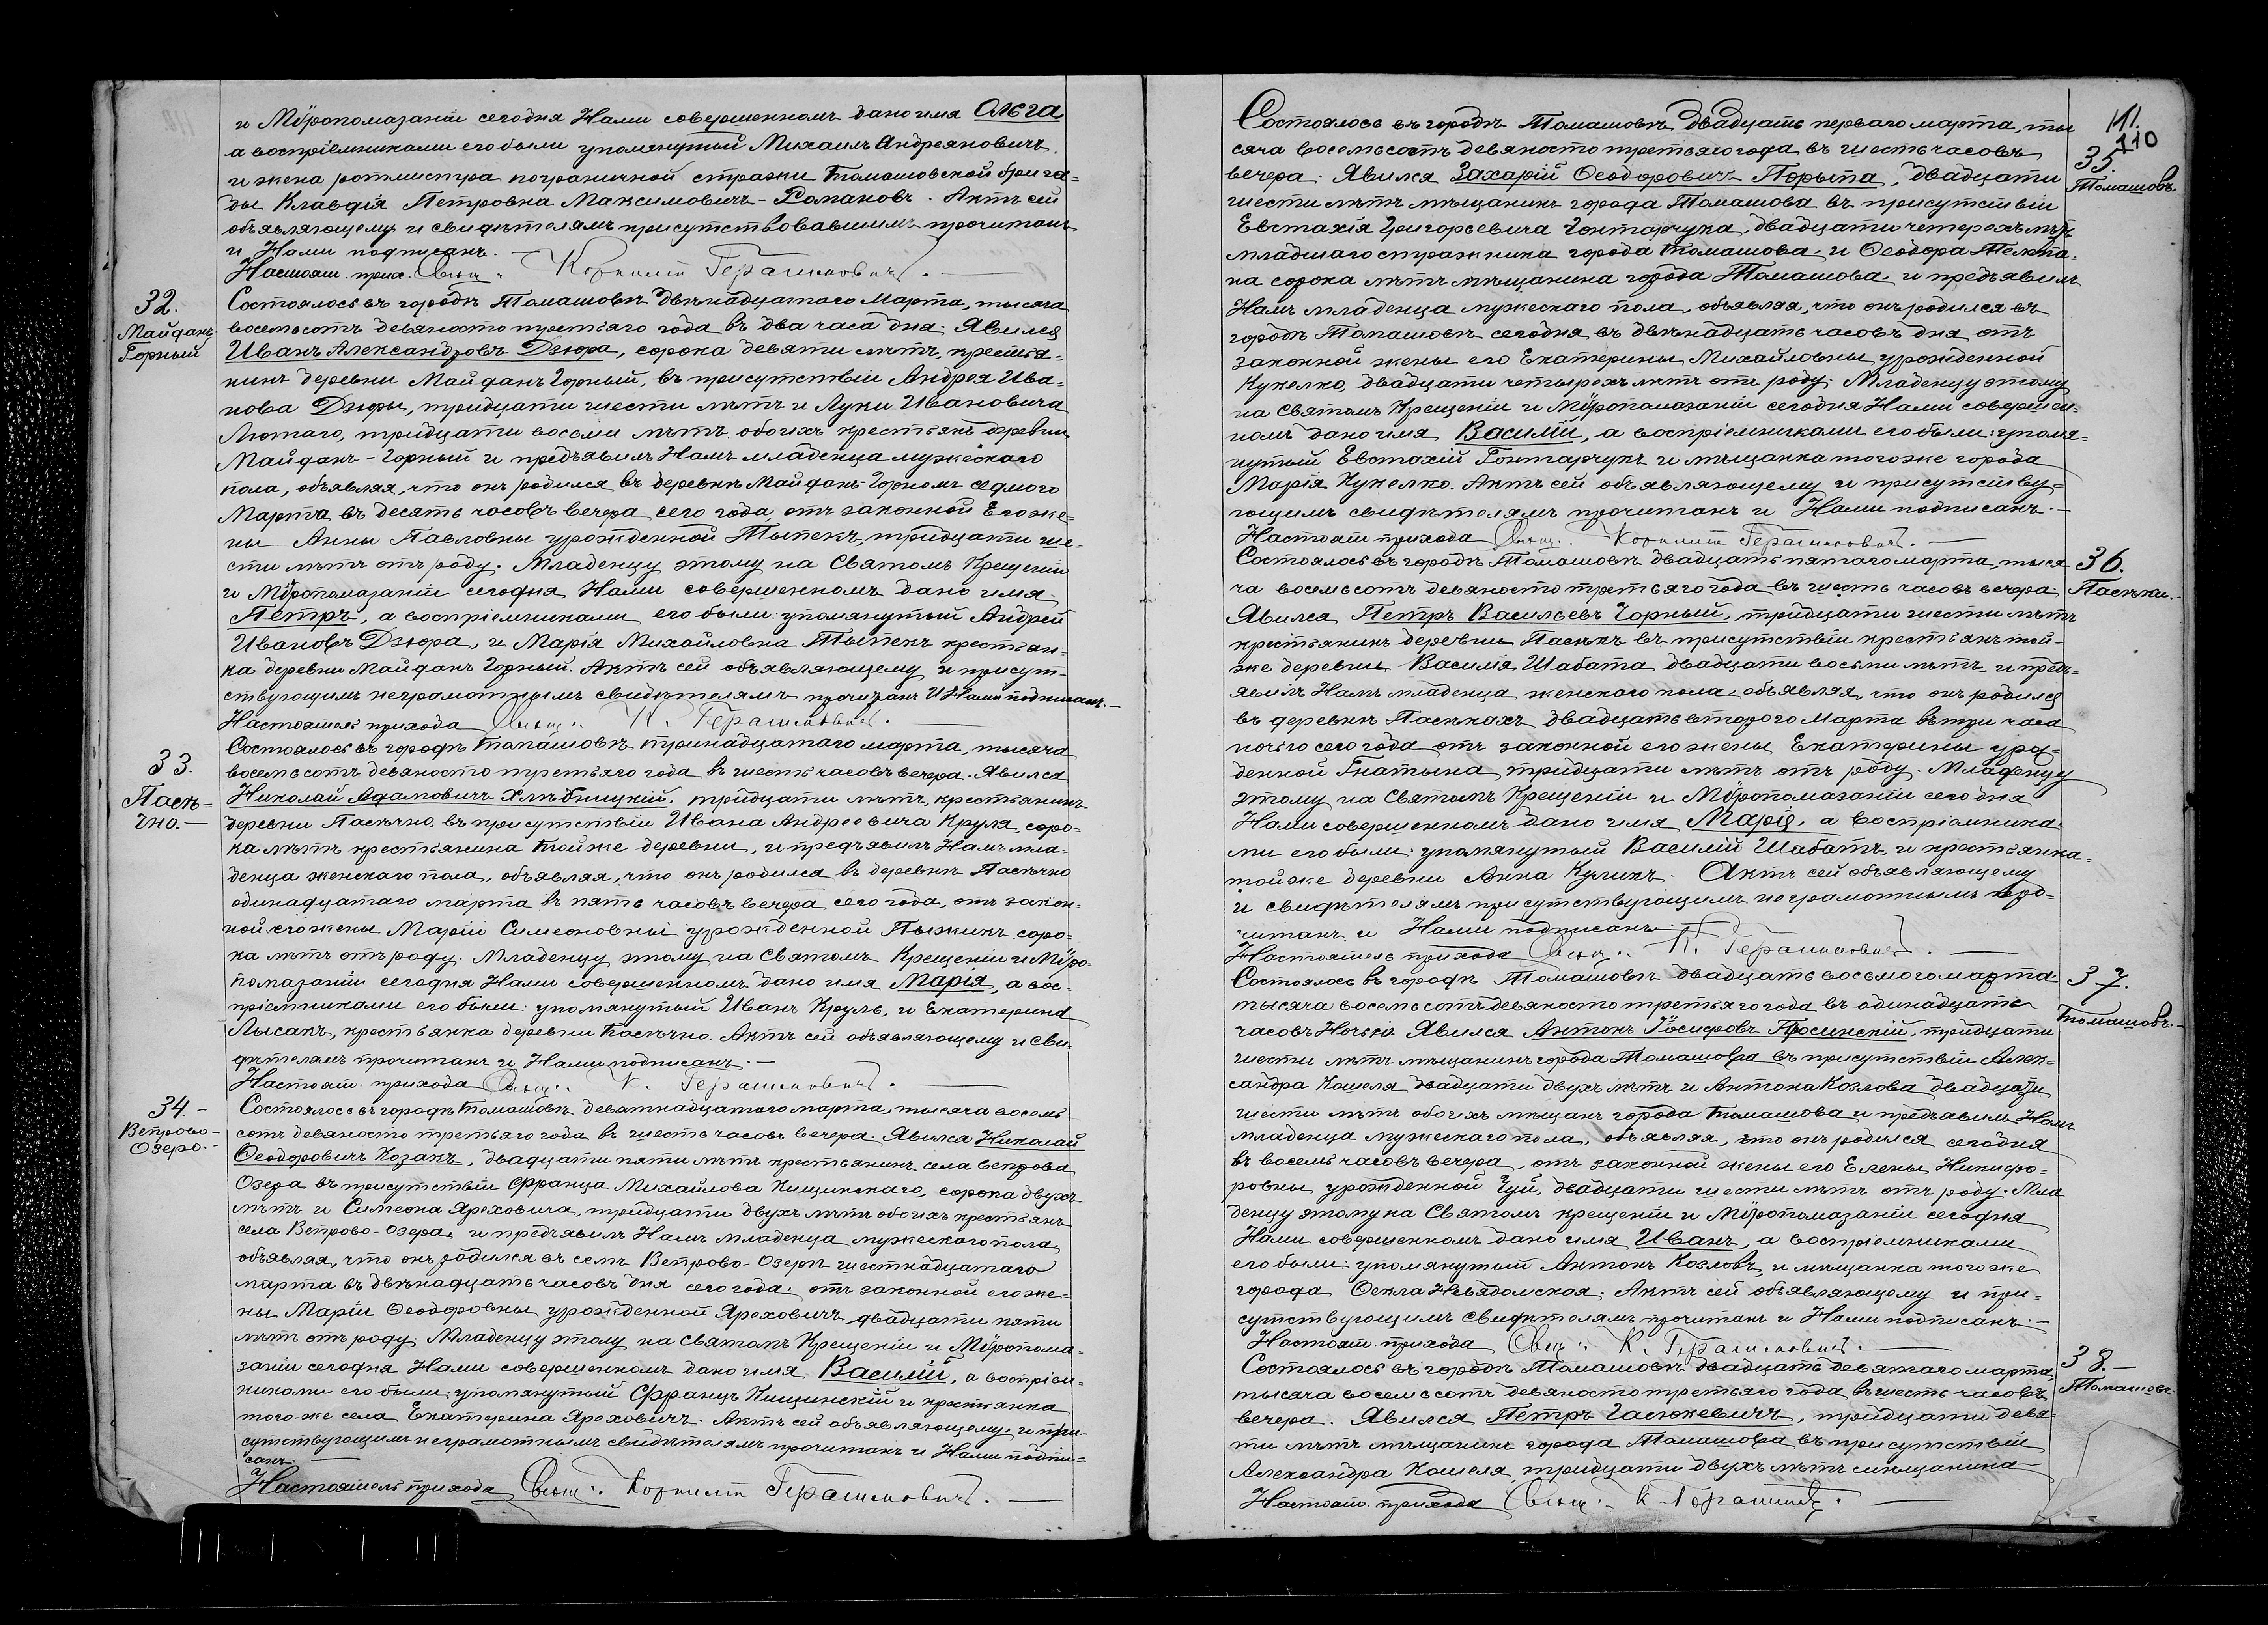 и Мѵропомазаніи сегодня Нами совершенномъ дано имя Ольга
а воспріемниками его были упомянутый Михаилъ Андреяновичъ
и жена ротмистра пограничной стражи Томашовской брига-
ды Клавдія Петровна Максимовичъ-Романовъ. Актъ сей
объявляющему и свидѣтелямъ присутствовавшимъ прочитанъ
и Нами подписанъ. —
Настоят. прих. Свящ. Корнилій Герасимовичъ. —
32.
Майданъ-
Горный
Состоялось въ городѣ Томашовѣ двѣнадцатаго Марта, тысяча
восемьсотъ девяносто третьяго года въ два часа дня. Явился
Иванъ Александровъ Дзюра, сорока девяти лѣтъ, крестья-
нинъ деревни Майданъ Горный, въ присутствіи Андрея Ива-
нова Дзюры, тридцати шести лѣтъ и Луки Ивановича
Лютаго, тридцати восьми лѣтъ обоихъ крестьянъ деревни
Майданъ-Горный и предъявилъ Намъ младенца мужескаго
пола, объявляя, что онъ родился въ деревнѣ Майданѣ-Горномъ седмого
Марта въ десять часовъ вечера сего года отъ законной Его же-
ны Анны Павловны урожденной Тыпекъ, тридцати ше-
сти лѣтъ отъ роду. Младенцу этому на Святомъ Крещеніи
и Мѵропомазаніи сегодня Нами совершенномъ дано имя
Петръ, а воспріемниками его были: упомянутый Андрей
Ивановъ Дзюра, и Марія Михайловна Тыпекъ крестьян-
ка деревни Майданъ Горный. Актъ сей объявляющему и присут-
ствующимъ неграмотнымъ свидѣтелямъ прочитанъ и Нами подписанъ. —
Настоятель прихода Свящ. К. Герасимовичъ. —
33.
Пасѣ-
чно. —
Состоялось въ городѣ Томашовѣ тринадцатаго марта, тысяча
восемьсотъ девяносто третьяго года въ шесть часовъ вечера. Явился
Николай Адамовичъ Хлѣбницкій, тридцати лѣтъ, крестьянинъ
деревни Пасѣчно, въ присутствіи Ивана Андреевича Круля, соро-
ка лѣтъ крестьянина той же деревни, и предъявилъ Намъ мла-
денца женскаго пола, объявляя, что онъ родился въ деревнѣ Пасѣчно
одинадцатаго марта въ пять часовъ вечера сего года, отъ закон-
ной его жены Маріи Симеоновны урожденной Пыжикъ соро-
ка лѣтъ отъ роду. Младенцу этому на Святомъ Крещеніи и Мѵро-
помазаніи сегодня Нами совершенномъ дано имя Марія, а вос-
пріемниками его были: упомянутый Иванъ Круль, и Екатерина
Лысакъ, крестьянка деревни Пасѣчно. Актъ сей объявляющему и сви-
дѣтелямъ прочитанъ и Нами подписанъ. —
Настоят. прихода Свящ. К. Герасимовичъ. —
34. —
Вепрово-
Озеро. —
Состоялось въ городѣ Томашовѣ девятнадцатаго марта, тысяча восемь
сотъ девяносто третьяго года въ шесть часовъ вечера. Явился Николай
Ѳеодоровичъ Козакъ, двадцати пяти лѣтъ крестьянинъ села Вепрова
Озера въ присутствіи Франца Михайлова Кицинскаго, сорока двухъ
лѣтъ и Симеона Яреховича, тридцати двухъ лѣтъ обоихъ крестьянъ
села Вепрово-Озера, и предъявилъ Намъ младенца мужескаго пола,
объявляя, что онъ родился въ селѣ Вепрово-Озерѣ шестнадцатаго
марта въ двѣнадцать часовъ дня сего года, отъ законной его же-
ны Маріи Ѳеодоровны урожденной Яреховичъ двадцати пяти
лѣтъ отъ роду. Младенцу этому на Святомъ Крещеніи и Мѵропома-
заніи сегодня Нами совершенномъ дано имя Василій, а воспріем-
никами его были: упомянутый Францъ Кицинскій и крестьянка
того-же села Екатерина Яреховичъ. Актъ сей объявляющему и при-
сутствующимъ неграмотнымъ свидѣтелямъ прочитанъ и Нами подпи-
санъ.
Настоятель прихода Свящ. Корнилій Герасимовичъ. —
111.
110
35.
Томашовъ
Состоялось въ городѣ Томашовѣ двадцать перваго марта, ты
сяча восемьсотъ девяносто третьяго года въ шесть часовъ
вечера. Явился Захарій Ѳеодоровичъ Порыпа, двадцати
шести лѣтъ мѣщанинъ города Томашова въ присутствіи
Евстахія Григорьевича Гонтарчука, двадцати четырехъ лѣтъ
младшаго стражника города Томашова и Ѳеодора
на сорока лѣтъ мѣщанина города Томашова и предъявилъ
Намъ младенца мужескаго пола, объявляя, что онъ родился въ
городѣ Томашовѣ сегодня въ двѣнадцать часовъ дня отъ
законной жены его Екатерины Михайловны урожденной
Кукелко, двадцати четырехъ лѣтъ отъ роду. Младенцу этому
на Святомъ Крещеніи и Мѵропомазаніи сегодня Нами совершен-
номъ дано имя Василій, а воспріемниками его были: упомя-
нутый Евстахій Гонтарчукъ и мѣщанка того же города
Марія Кукелко. Актъ сей объявляющему и присутству-
ющимъ свидѣтелямъ прочитанъ и Нами подписанъ. —
Настоят. прихода Свящ. Корнилій Герасимовичъ. —
36.
Пасѣки. —
Состоялось въ городѣ Томашовѣ двадцать пятаго марта, тыся
ча восемьсотъ девяносто третьяго года въ шесть часовъ вечера
Явился Петръ Васильевъ Чорный, тридцати шести лѣтъ
крестьянинъ деревни Пасѣкъ въ присутствіи крестьянъ той-
же деревни Василія Шабата двадцати восьми лѣтъ и предъ-
явилъ Намъ младенца женскаго пола, объявляя, что онъ родился
въ деревнѣ Пасѣкахъ двадцать второго Марта въ три часа
ночью сего года отъ законной его жены Екатерины урож-
денной Гнатына тридцати лѣтъ отъ роду. Младенцу
этому на Святомъ Крещеніи и Мѵропомазаніи сегодня
Нами совершенномъ дано имя Марія, а воспріемника-
ми его были: упомянутый Василій Шабатъ, и крестьянка-
той же деревни Анна Куликъ. Актъ сей объявляющему
и свидѣтелямъ присутствующимъ неграмотнымъ про-
читанъ и Нами подписанъ.
Настоятель прихода Свящ. К. Герасимовичъ. —
37.
Томашовъ. —
Состоялось въ городѣ Томашовѣ двадцать восьмого марта
тысяча восемьсотъ девяносто третьяго года въ одинадцать
часовъ Ночью Явился Антонъ Іосифовъ Просинскій, тридцати
шести лѣтъ мѣщанинъ города Томашова въ присутствіи Алек-
сандра Кошеля двадцати двухъ лѣтъ и Антона Козлова двадцати
шести лѣтъ обоихъ мѣщанъ города Томашова и предъявилъ Намъ
младенца мужескаго пола, объявляя, что онъ родился сегодня
въ восемь часовъ вечера, отъ законной жены его Елены Никифо-
ровны урожденной Чуй, двадцати шести лѣтъ отъ роду. Мла
денцу этому на Святомъ крещеніи и Мѵропомазаніи сегодня
Нами совершенномъ дано имя Иванъ, а воспріемниками
его были: упомянутый Антонъ Козловъ, и мѣщанка того же
города Ѳекла Невядомская. Актъ сей объявляющему и при-
сутствующимъ свидѣтелямъ прочитанъ и Нами подписанъ. —
Настоят. прихода Свящ. К. Герасимовичъ. —
38. —
Томашовъ.
Состоялось въ городѣ Томашовѣ двадцать девятаго марта,
тысяча восемьсотъ девяносто третьяго года въ шесть часовъ
вечера. Явился Петръ Гасюкевичъ, тридцати девя-
ти лѣтъ мѣщанинъ города Томашова въ присутствіи
Александра Кошеля, тридцати двухъ лѣтъ мѣщанина
Настоят. прихода Свящ. К. Герасимовичъ. —